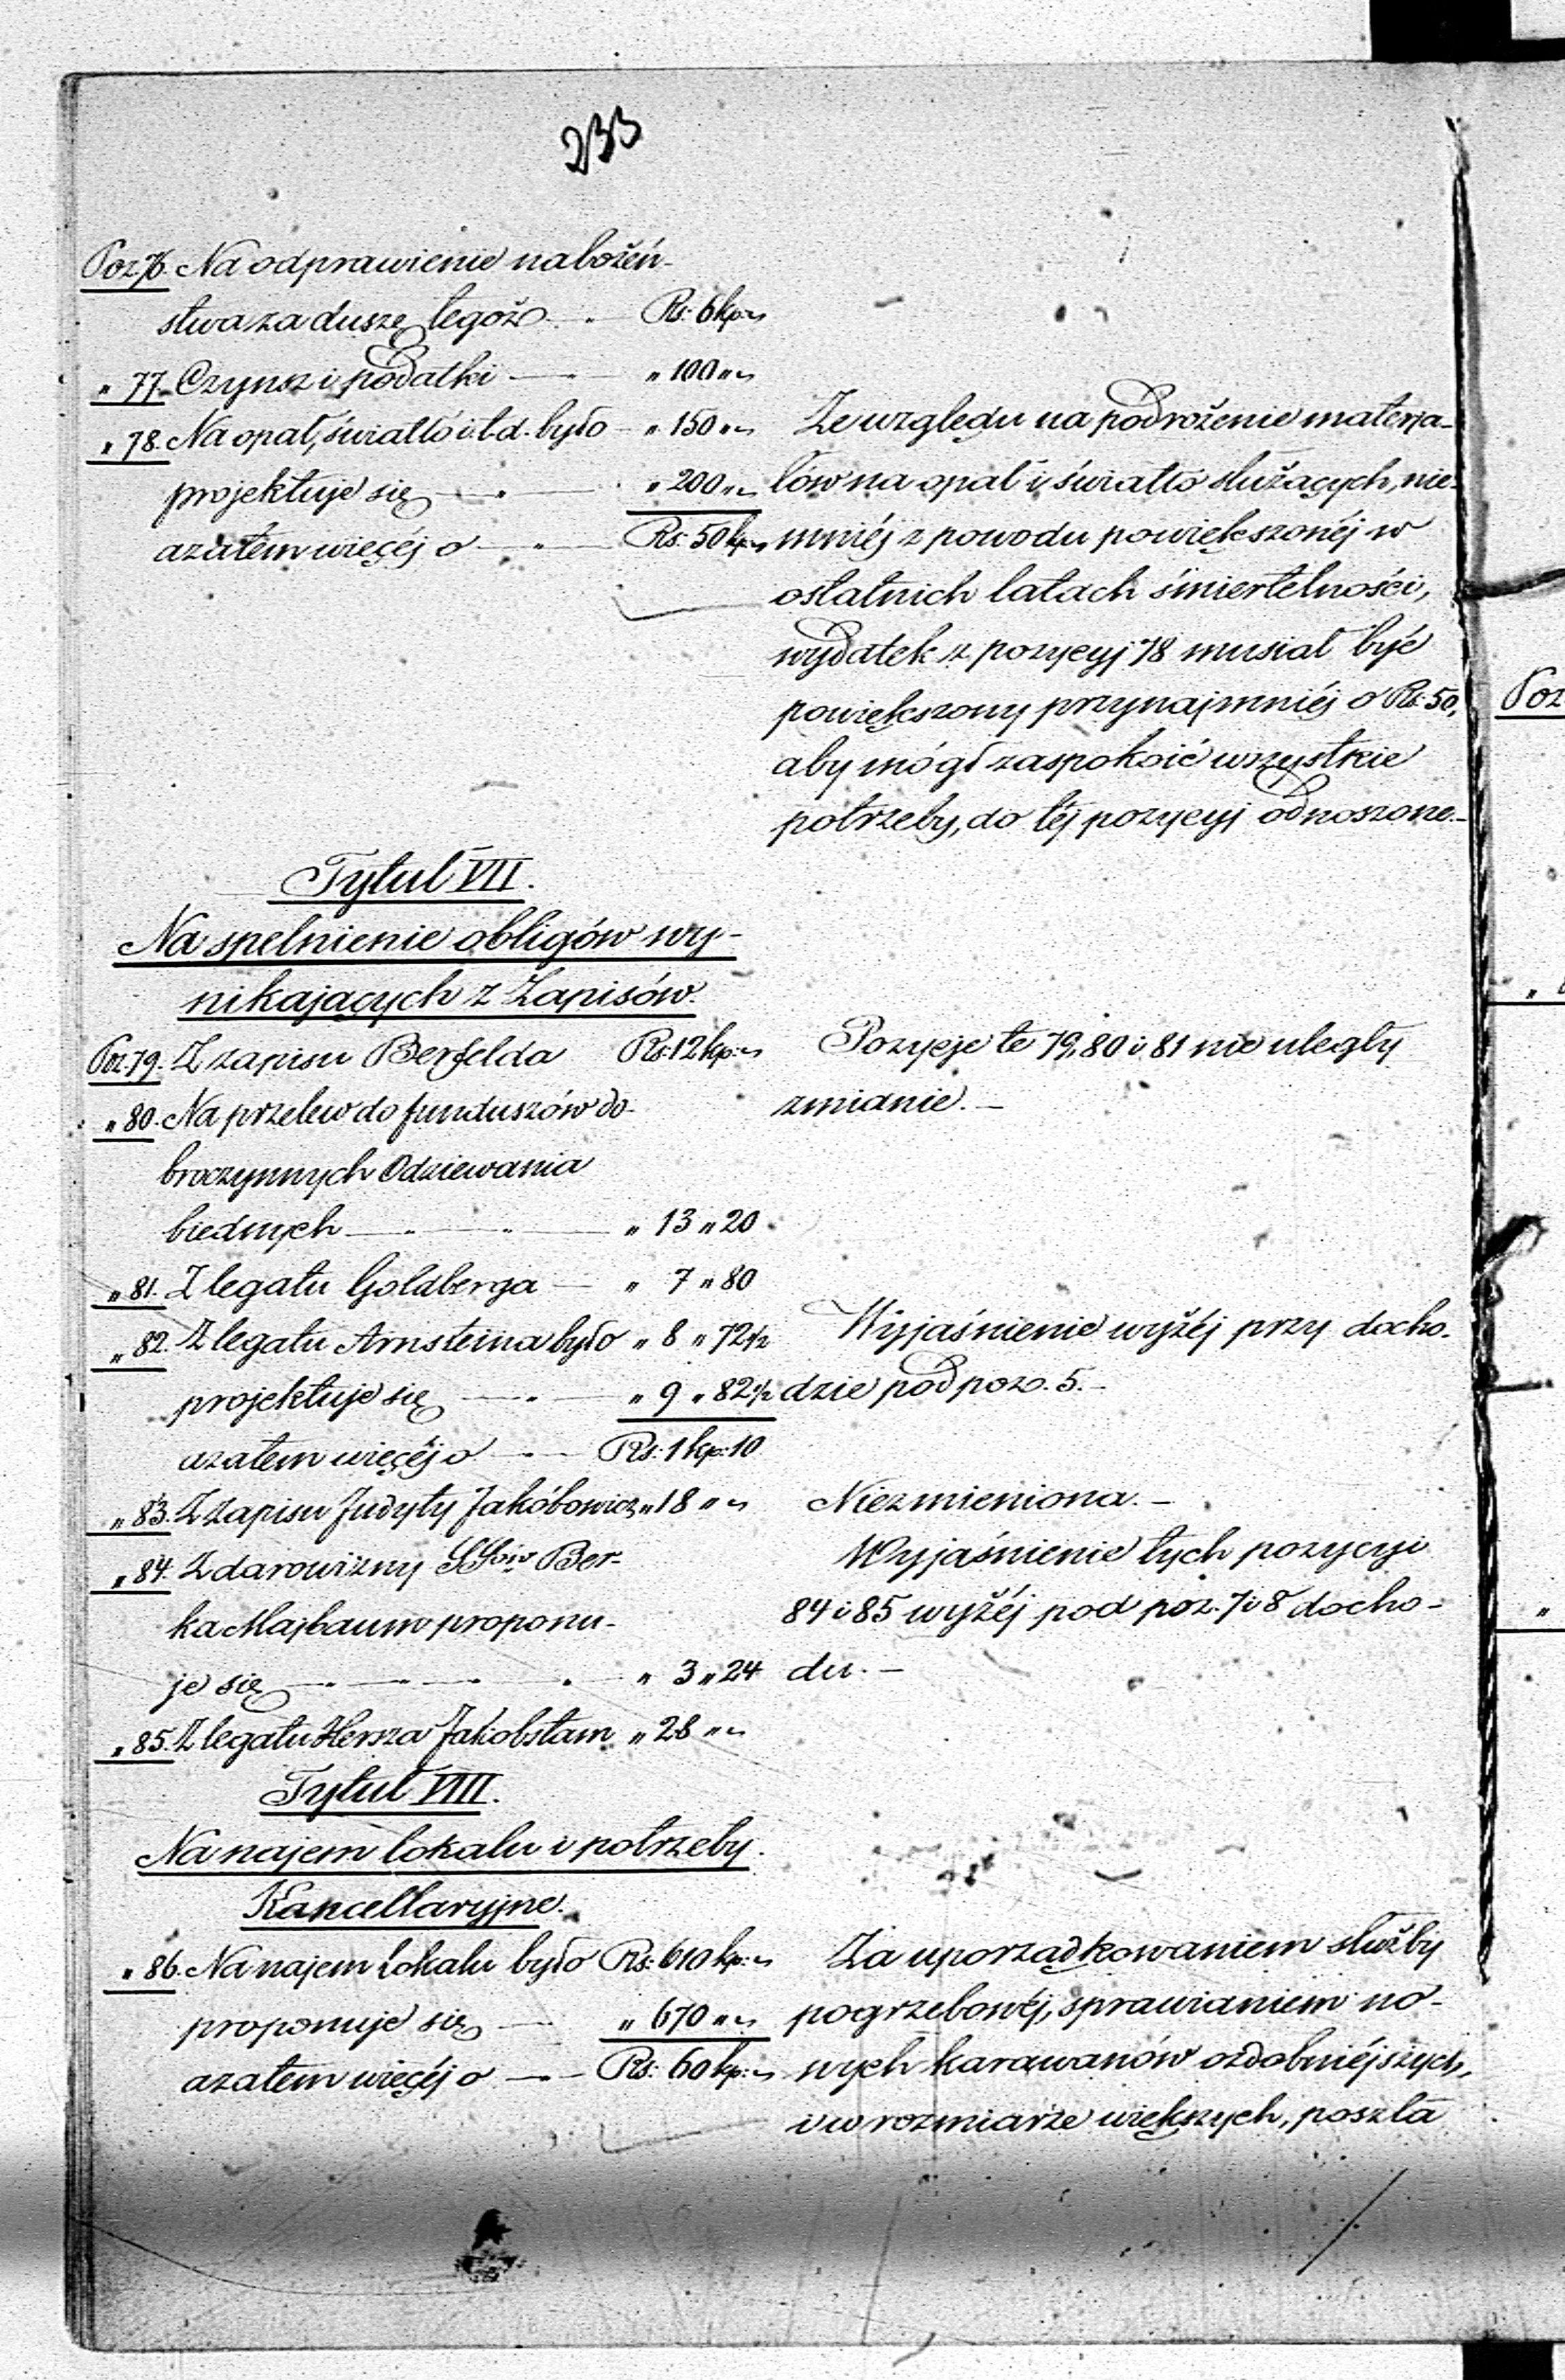 233
Poz 76. Na odprawienie nabożeń-
stwa za duszę tegoż " Rs: 6 kp: „
" 77. Czynsz i podatki — " — " 100 " „
" 78. Na opał, światło i t.d. było — " 150 " „
projektuje się — " — " 200 " „
azatém więcéj o — " — Rs: 50 kp: „
Ze względu na podrożenie materja-
łów na opał i światło służących, nie-
mniéj z powodu powiększonéj w
ostatnich latach śmiertelności,
wydatek z pozycyj 78 musiał być
powiększony przynajmniéj o Rs: 50,
aby mógł zaspokoić wszystkie
potrzeby, do téj pozycyj odnoszone.—
Tytuł VII.
Na spełnienie obligów wy-
nikających z Zapisów.
Poz. 79. Z zapisu Berfelda Rs: 12 kp: „
" 80. Na przelew do funduszów do-
broczynnych Odziewania
biednych — " — " — " 13 " 20
" 81. Z legatu Goldberga — " 7 " 80
Pozycje te 79, 80 i 81 nie uległy
zmianie. —
" 82. Z legatu Arnsteina było " 8 " 72½
projektuje się — " — " 9 " 82½
azatem więcéj o — " — Rs: 1 kp: 10
Wyjaśnienie wyżéj przy docho-
dzie pod poz. 5. —
" 83. Z Zapisu Judyty Jakóbowicz " 18 " „
Niezmieniona. —
" 84. Z darowizny SSów Ber-
ka Majbaum proponu-
je się — " — " — " — " 3 " 24
" 85. Z legatu Hersza Jakobstam " 28 " „
Wyjaśnienie tych pozycyi
84 i 85 wyżéj pod poz. 7 i 8 docho-
du. —
Tytuł VIII.
Na najem lokalu i potrzeby
Kancellaryjne.
" 86. Na najem lokalu było Rs: 610 kp: „
proponuje się — " 670 " „
azatem więcéj o — " — Rs: 60 kp: „
Za uporządkowaniem służby
pogrzebowéj, sprawianiem no-
wych karawanów ozdobniéjszych,
i w rozmiarze większych, poszła
Poz